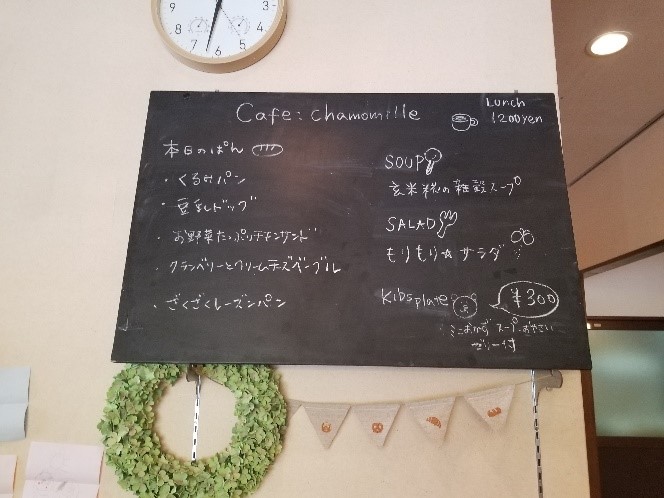 Cafe: chamomille
Lunch
1200yen
本日のぱん
・くるみパン
・豆乳ドッグ
・お野菜たっぷりチキンサンド
・クランベリーとクリームチーズベーグル
・ざくざくレーズンパン
SOUP
玄米糀の雑穀スープ
SALAD
もりもり☆サラダ
Kidsplate
¥300
ミニおかず スープ おやさい
ゼリー付
9
8
7
6
5
4
3